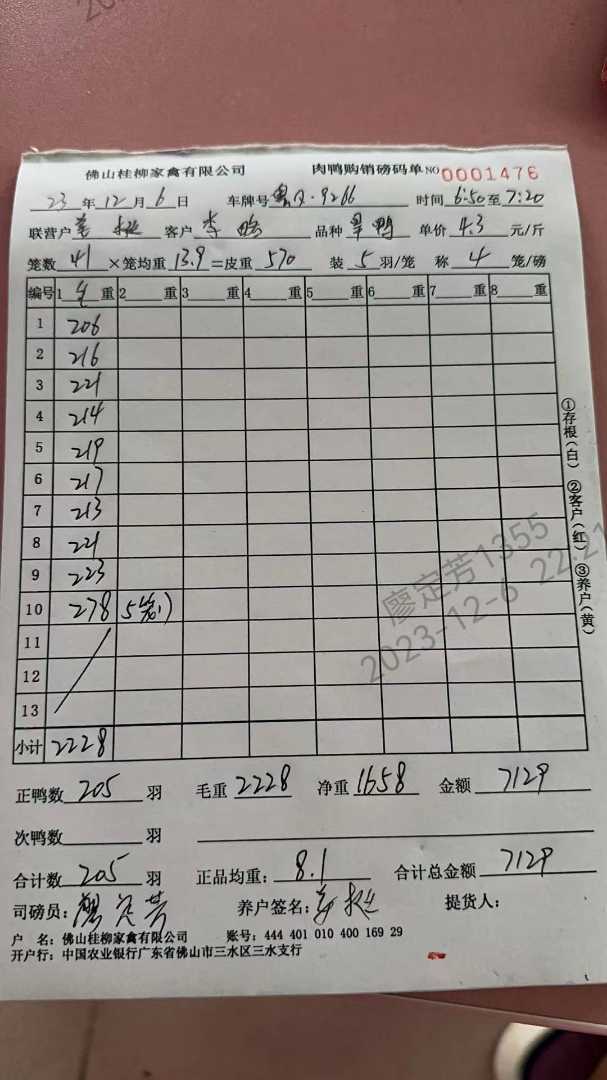 佛山桂柳家禽有限公司 肉鸭购销磅码单 NO 0001476
23 年 12 月 6 日 车牌号 9266 时间 6:50 至 7:20
联营户 客户 李 品种 鸭 单价 4.3 元/斤
笼数 41 ×笼均重 13.9 =皮重 570 装 5 羽/笼 称 4 笼/磅
编号 1 毛 重 2 重 3 重 4 重 5 重 6 重 7 重 8 重
1 206
2 216
3 221
4 214
5 219
6 217
7 213
8 221
9 223
10 278 (5笼)
11
12
13
小计 2228
①存根(白) ②客户(红) ③养户(黄)
廖定芳1355
2023-12-6 22:21
正鸭数 205 羽 毛重 2228 净重 1658 金额 7129
次鸭数 羽
合计数 205 羽 正品均重: 8.1 合计总金额 7129
司磅员: 廖定芳 养户签名: 提货人:
户 名: 佛山桂柳家禽有限公司 账号: 444 401 010 400 169 29
开户行: 中国农业银行广东省佛山市三水区三水支行